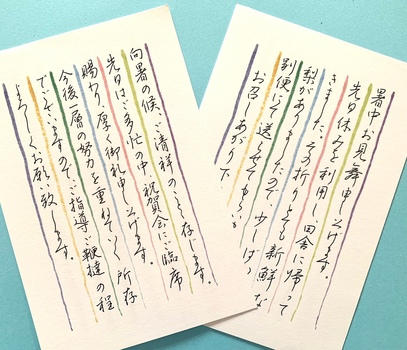 暑中お見舞申し上げます。
先日休みを利用し、田舎に帰って
きました。その折、とても新鮮な
梨がありましたので、少しば
別便にて送らせてもらい
お召しあがり下
向暑の候、ご清祥のことと存じます。
先日はご多忙の中、祝賀会にご臨席
賜わり、厚く御礼申し上げます。
今後一層の努力を重ねていく所存
でございますので、ご指導ご鞭撻の程
よろしくお願い致します。